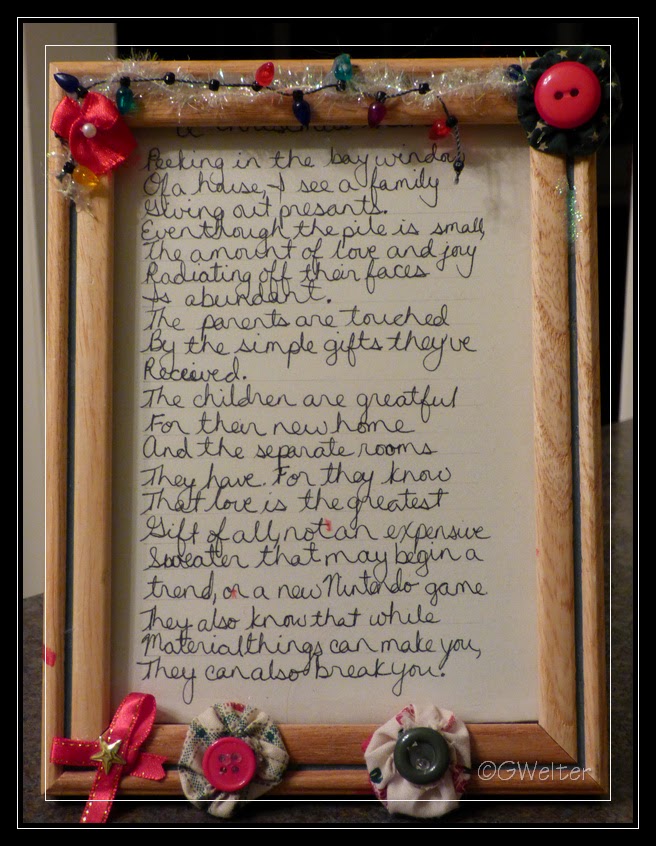 a Christmas
Peeking in the bay window
Of a house, I see a family
Giving out presants.
Eventhough the pile is small,
The amount of love and joy
Radiating off their faces
Is abundant.
The parents are touched
By the simple gifts they've
Received.
The children are greatful
For their new home
And the separate rooms
They have. For they know
That love is the greatest
Gift of all, not an expensive
Sweater that may begin a
trend, or a new Nintendo game
They also know that while
Material things can make you,
They can also break you.
©GWelter